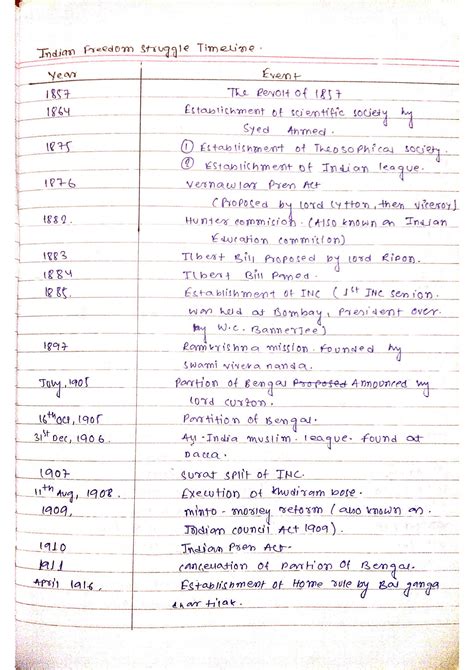 Indian Freedom Struggle Timeline.
Year Event
1857 The Revolt of 1857
1864 Establishment of scientific society by
Syed Ahmed.
1875 ① Establishment of Theosophical society.
② Establishment of Indian league.
1876 Vernacular Pren Act
(Proposed by lord Lytton, then viceroy)
1882. Hunter commicion. (Also known an Indian
Education commision)
1883 Ilbert Bill Proposed by lord Ripon.
1884 Ilbert Bill Paned.
1885. Establishment of INC (1st INC senion.
was held at Bombay, President over.
by W.C. Bannerjee)
1897 Ramkrishna mission. founded by
Swami vivekananda.
July, 1905 Partion of Bengal Proposed Announced by
lord curzon.
16th Oct, 1905 Partition of Bengal.
31st Dec, 1906. All-India muslim. league. found at
Dacca.
1907 Surat split of INC.
11th Aug, 1908. Execution of khudiram bose.
1909, minto-morley reform (also known an.
Indian council Act 1909).
1910 Indian Pren Act.
1911 cancelation of Partion Of Bengal.
April 1916, Establishment of Home rule by Bal ganga
dhar tilak.